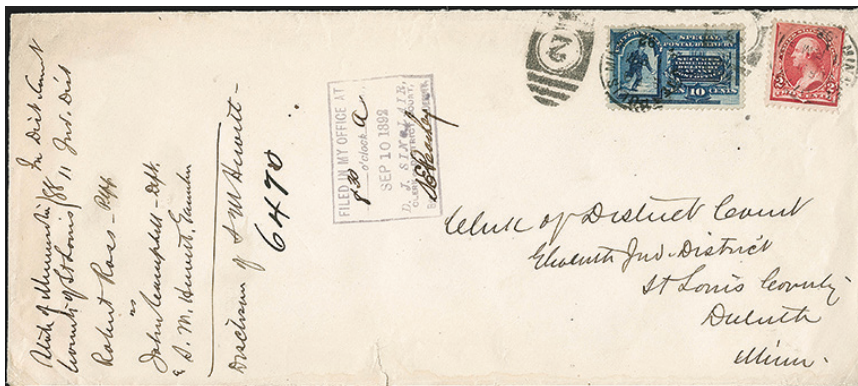 State of Minnesota } In Dist Court
County of St Louis } SS 11 Jud. Dist
Robert Ross - Plff
vs
John Campbell - Deft.
& S. M. Hewitt,
Disclosure of S M Hewitt -
6470
FILED IN MY OFFICE AT
8 30 o'clock A
SEP 10 1892
D. J. SINCLAIR,
CLERK DISTRICT COURT,
2
SPECIAL
POSTAL DELIVERY
TEN 10 CENTS
2 2
Clerk of District Court
Eleventh Jud. District
St Louis County
Duluth
Minn.